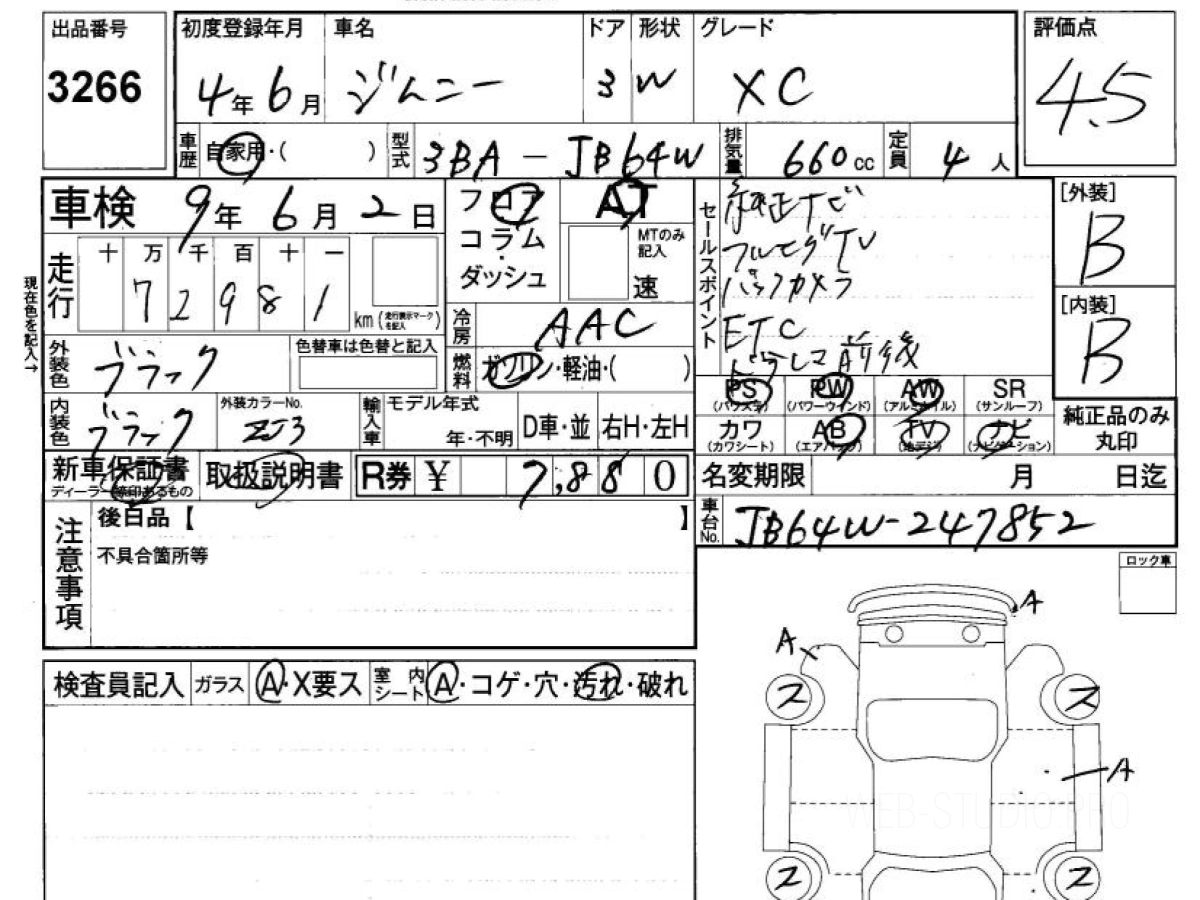 出品番号 初度登録年月 車名 ドア 形状 グレード 評価点
3266 4年6月 ジムニー 3 W XC 4.5
車歴 自家用・( ) 型式 3BA-JB64W 排気量 660cc 定員 4人
車検 9年6月2日 フロア AT セールスポイント 純正ナビ [外装]
コラム MTのみ記入 フルセグTV B
ダッシュ 速 バックカメラ
現在色を記入→ 走行 十 万 千 百 十 一 ETC [内装]
7 2 9 8 1 km (走行表示マークを記入) 冷房 AAC ドラレコ前後 B
外装色 ブラック 色替車は色替と記入 燃料 ガソリン・軽油・( )
PS (パワステ) PW (パワーウインド) AW (アルミホイル) SR (サンルーフ)
内装色 ブラック 外装カラーNo. ZJ3 輸入車 モデル年式 年・不明 D車・並 右H・左H
カワ (カワシート) AB (エアバック) TV (地デジ) ナビ (ナビゲーション) 純正品のみ丸印
新車保証書 ディーラー締印あるもの 取扱説明書 R券 ¥ 7,880 名変期限 月 日迄
注意事項 後日品【 】 車台No. JB64W-247852
不具合箇所等
ロック車
A
A
検査員記入 ガラス A・X要ス 室内シート A・コゲ・穴・汚れ・破れ
ス ス
A
WEB-STUDIO.PRO
ス ス